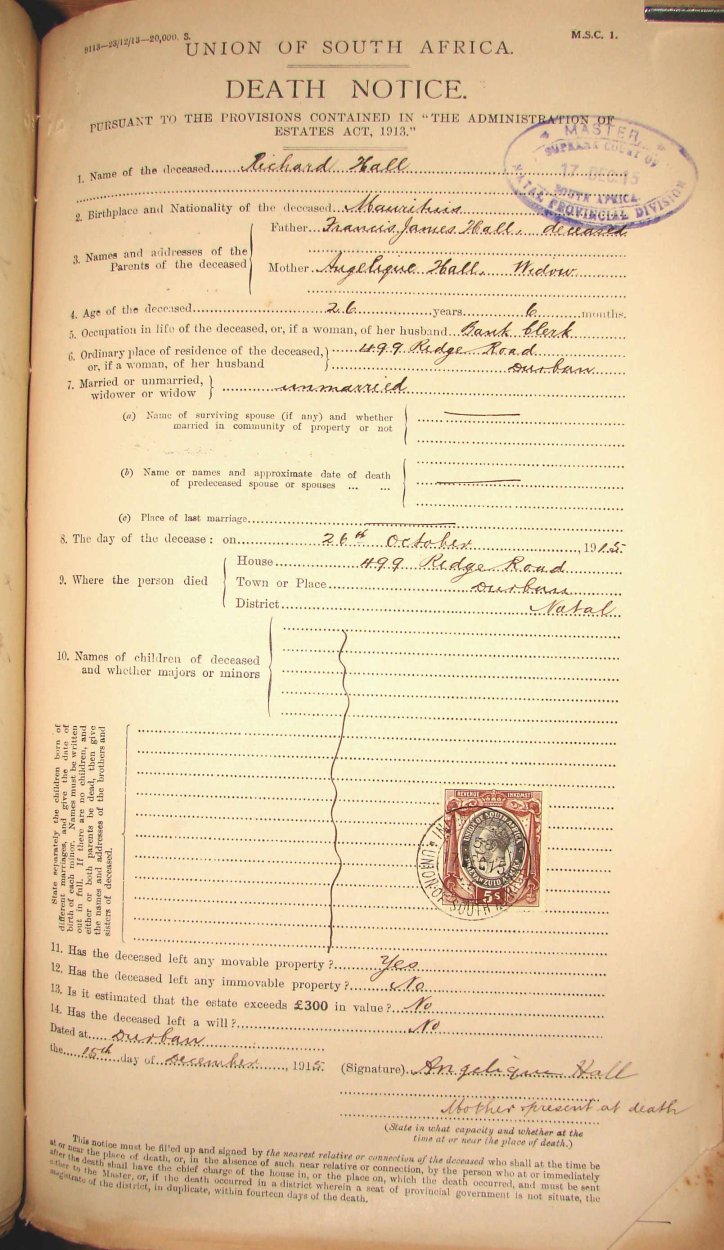 9113—23/12/13—20,000. S.
M.S.C. 1.
UNION OF SOUTH AFRICA.
DEATH NOTICE.
PURSUANT TO THE PROVISIONS CONTAINED IN "THE ADMINISTRATION OF
ESTATES ACT, 1913."
MASTER
SUPREME COURT OF
17 DEC 15
SOUTH AFRICA
NATAL PROVINCIAL DIVISION
1. Name of the deceased Richard Hall
2. Birthplace and Nationality of the deceased Mauritius
3. Names and addresses of the Parents of the deceased
Father Francis James Hall, deceased
Mother Angelique Hall, Widow
4. Age of the deceased 26 years 6 months.
5. Occupation in life of the deceased, or, if a woman, of her husband Bank Clerk
6. Ordinary place of residence of the deceased, 499 Ridge Road
or, if a woman, of her husband Durban
7. Married or unmarried,
widower or widow unmarried
(a) Name of surviving spouse (if any) and whether
married in community of property or not
(b) Name or names and approximate date of death
of predeceased spouse or spouses ... ...
(c) Place of last marriage
8. The day of the decease: on 26th October, 1915
9. Where the person died
House 499 Ridge Road
Town or Place Durban
District Natal
10. Names of children of deceased
and whether majors or minors
State separately the children born of
different marriages, and give the date of
birth of each minor. Names must be written
out in full. If there are no children, and
either or both parents be dead, then give
the names and addresses of the brothers and
sisters of deceased.
REVENUE INKOMST
UNION OF SOUTH AFRICA
5s
11. Has the deceased left any movable property? Yes
12. Has the deceased left any immovable property? No
13. Is it estimated that the estate exceeds £300 in value? No
14. Has the deceased left a will? No
Dated at Durban
the 15th day of December, 1915.
(Signature) Angelique Hall
Mother present at death
(State in what capacity and whether at the
time at or near the place of death.)
This notice must be filled up and signed by the nearest relative or connection of the deceased who shall at the time be
at or near the place of death, or, in the absence of such near relative or connection, by the person who at or immediately
after the death shall have the chief charge of the house in, or the place on, which the death occurred, and must be sent
either to the Master, or, if the death occurred in a district wherein a seat of provincial government is not situate, the
magistrate of the district, in duplicate, within fourteen days of the death.